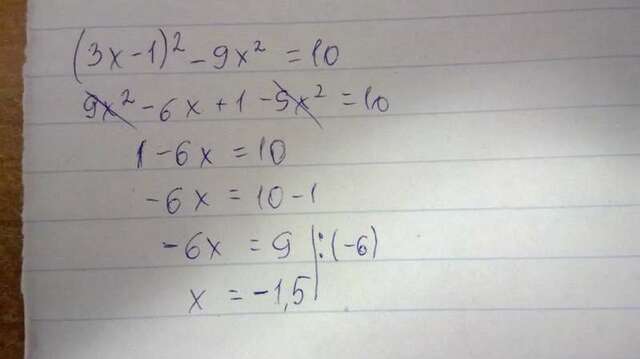 (3x-1)² - 9x² = 10
9x² - 6x + 1 - 9x² = 10
1 - 6x = 10
-6x = 10 - 1
-6x = 9 |:(-6)
x = -1,5